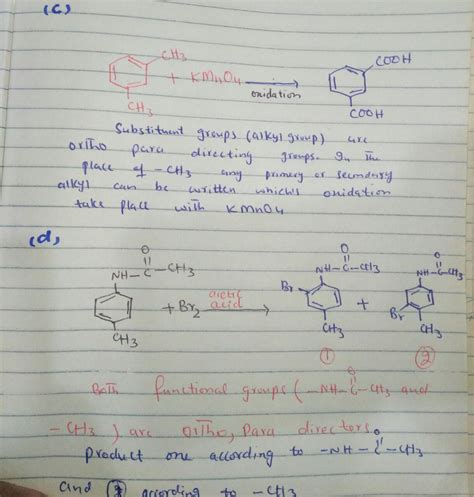 (c)
CH3
+ KMnO4
oxidation
CH3
COOH
COOH
Substituent groups (alkyl group) are
ortho para directing groups. In the
place of -CH3 any primery or secondary
alkyl can be written which's oxidation
take place with KMnO4
(d)
O
NH-C-CH3
+ Br2
acetic
acid
CH3
O
NH-C-CH3
Br
CH3
+
O
NH-C-CH3
Br
CH3
① ②
Both functional groups (-NH-C-CH3 and
O
-CH3) are ortho, para directors
Product one according to -NH-C-CH3
O
and ② according to -CH3